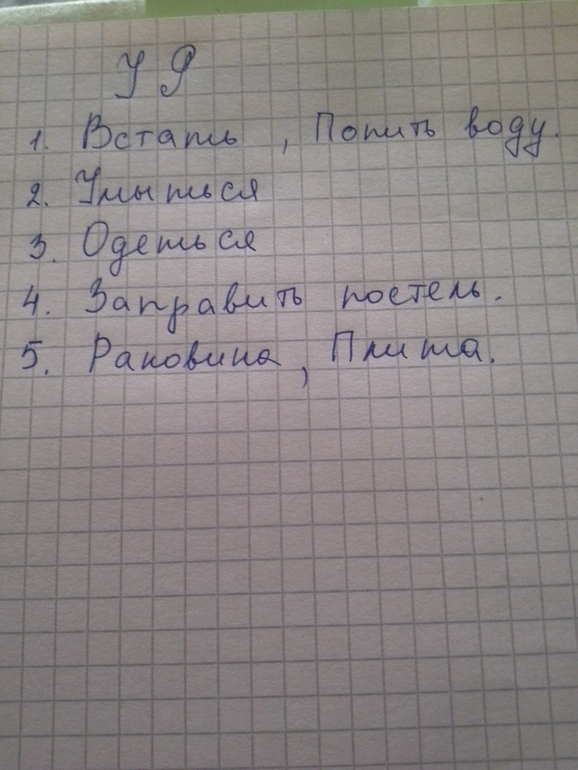 У Р
1. Встать , Попить воду.
2. Умыться
3. Одеться
4. Заправить постель.
5. Раковина, Плита.